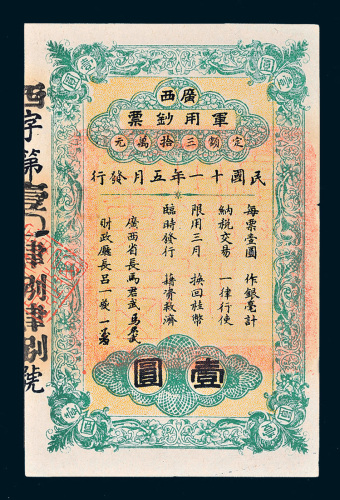 廣西
軍用鈔票
定額三拾萬元
民國十一年五月發行
每票壹圓 作銀毫計
納稅交易 一律行使
限用三月 換回桂幣
臨時發行 藉資救濟
廣西省長馬君武 馬君武
財政廳長呂一夔
壹圓
西字第
號